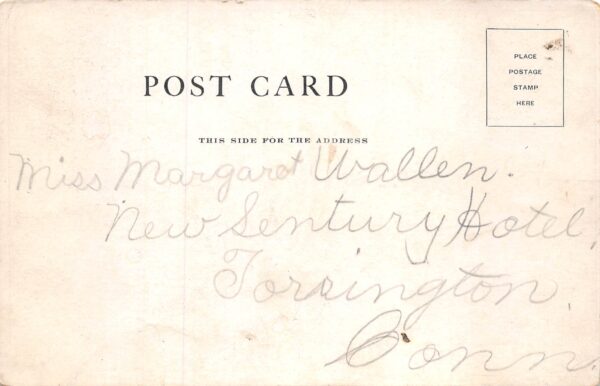 POST CARD
PLACE
POSTAGE
STAMP
HERE
THIS SIDE FOR THE ADDRESS
Miss Margaret Wallen.
New Sentury Hotel,
Torrington
Conn.